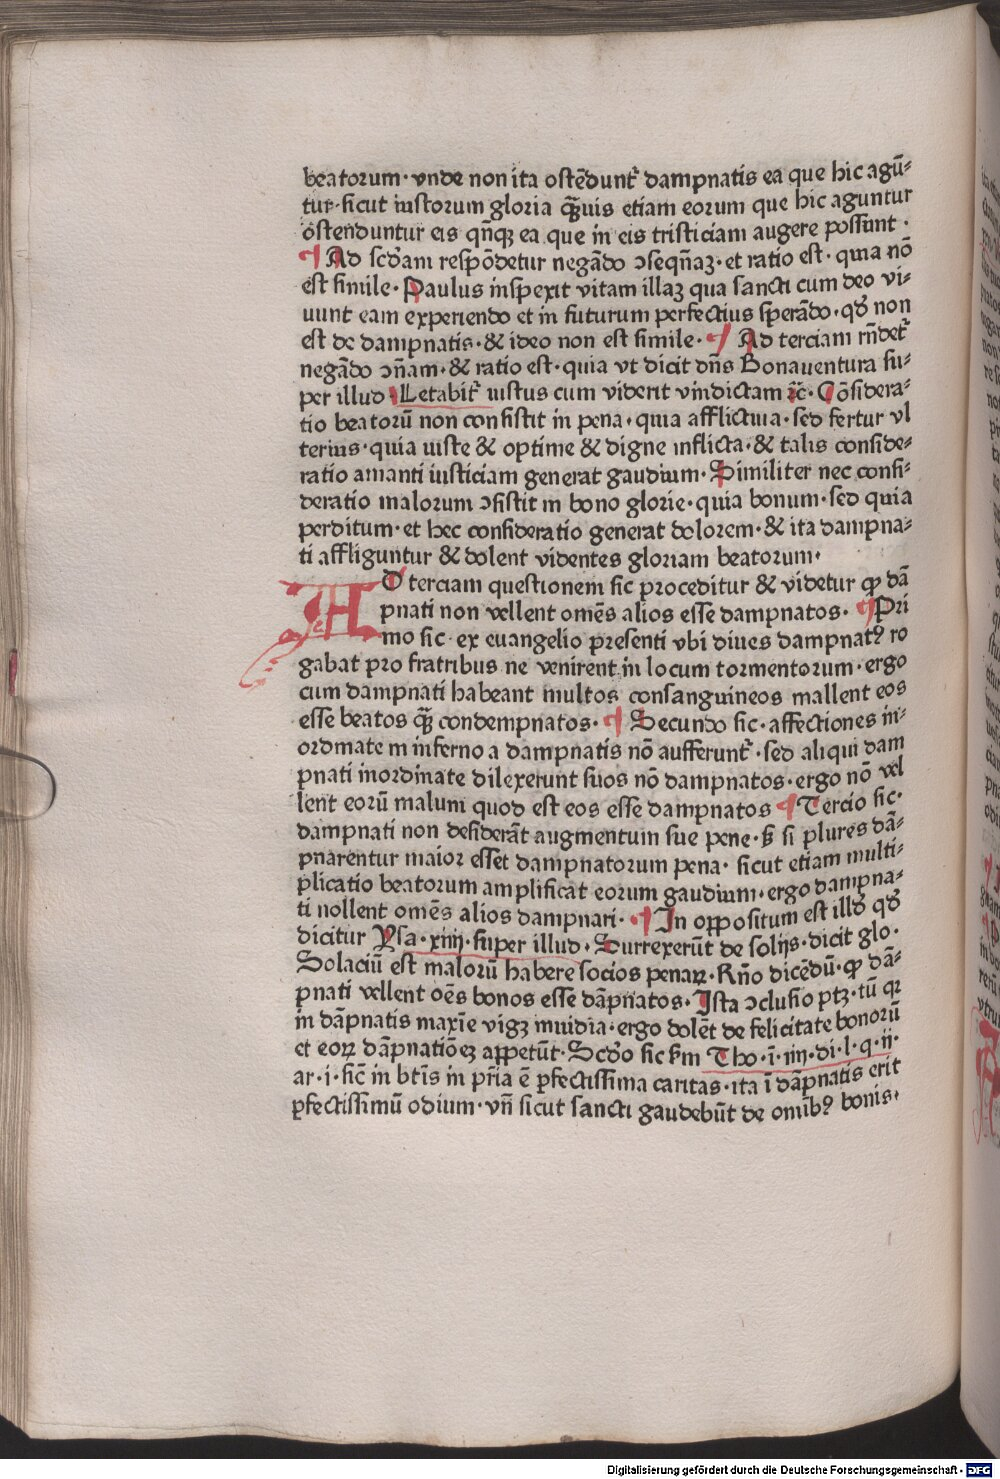 beatorum· vnde non ita ostēdunt᷑ dampnatis ea que hic agū-
tur· sicut iustorum gloria q̄uis etiam eorum que hic aguntur
ostenduntur eis qn̄qꝫ ea que in eis tristiciam augere possunt·
¶ Ad scd̄am respōdetur negādo ꝯseqn̄aꝫ· et ratio est· quia nō
est simile· Paulus inspexit vitam illaꝫ qua sancti cum deo vi-
uunt eam experiendo et in futurum perfectius sperādo· qd̄ non
est de dampnatis· & ideo non est simile· ¶ Ad terciam rn̄det᷑
negādo ꝯn̄am· & ratio est· quia vt dicit dn̄s Bonauentura su-
per illud Letabit᷑ iustus cum viderit vindictam ⁊c̄· Cōsidera-
tio beatorū non consistit in pena· quia afflictiua· sed fertur vl
terius· quia iuste & optime & digne inflicta· & talis conside-
ratio amanti iusticiam generat gaudium· Similiter nec consi-
deratio malorum ꝯsistit in bono glorie· quia bonum· sed quia
perditum· et hec consideratio generat dolorem· & ita dampna-
ti affliguntur & dolent videntes gloriam beatorum·
AD terciam questionem sic proceditur & videtur ꝙ dā
pnati non vellent omēs alios esse dampnatos· ¶ Pri
mo sic· ex euangelio presenti vbi diues dampnatꝰ ro
gabat pro fratribus ne venirent in locum tormentorum· ergo
cum dampnati habeant multos consanguineos mallent eos
esse beatos q̄ȝ condempnatos· ¶ Secundo sic· affectiones in-
ordinate in inferno a dampnatis nō aufferunt᷑· sed aliqui dam
pnati inordinate dilexerunt suos nō dampnatos· ergo nō vel
lent eorū malum quod est eos esse dampnatos ¶ Tercio sic·
dampnati non desiderāt augmentum sue pene· sꝫ si plures dā-
pnarentur maior esset dampnatorum pena· sicut etiam multi-
plicatio beatorum amplificat eorum gaudium· ergo dampna-
ti nollent omēs alios dampnari· ¶ In oppositum est illd̄ qd̄
dicitur Ysa· xiiij· super illud· Surrexerūt de solijs· dicit glo·
Solaciū est malorū habere socios penaꝝ· Rn̄o dicēdū· ꝙ dā-
pnati vellent oēs bonos esse dāpnatos· Ista ꝯclusio ptꝫ· tū qꝛ
in dāpnatis maxīe vigꝫ inuidia· ergo dolēt de felicitate bonorū
et eoꝝ dāpnatiōeꝫ appetūt· Scd̄o sic sm̄ Tho· ī· iiij· di· l· q· ij·
ar· i· sic̄ in btīs in pr̄ia ē ꝑfectissima caritas· ita ī dāpnatis erit
ꝑfectissimū odium· vn̄ sicut sancti gaudebūt de omībꝰ bonis·
Digitalisierung gefördert durch die Deutsche Forschungsgemeinschaft - DFG